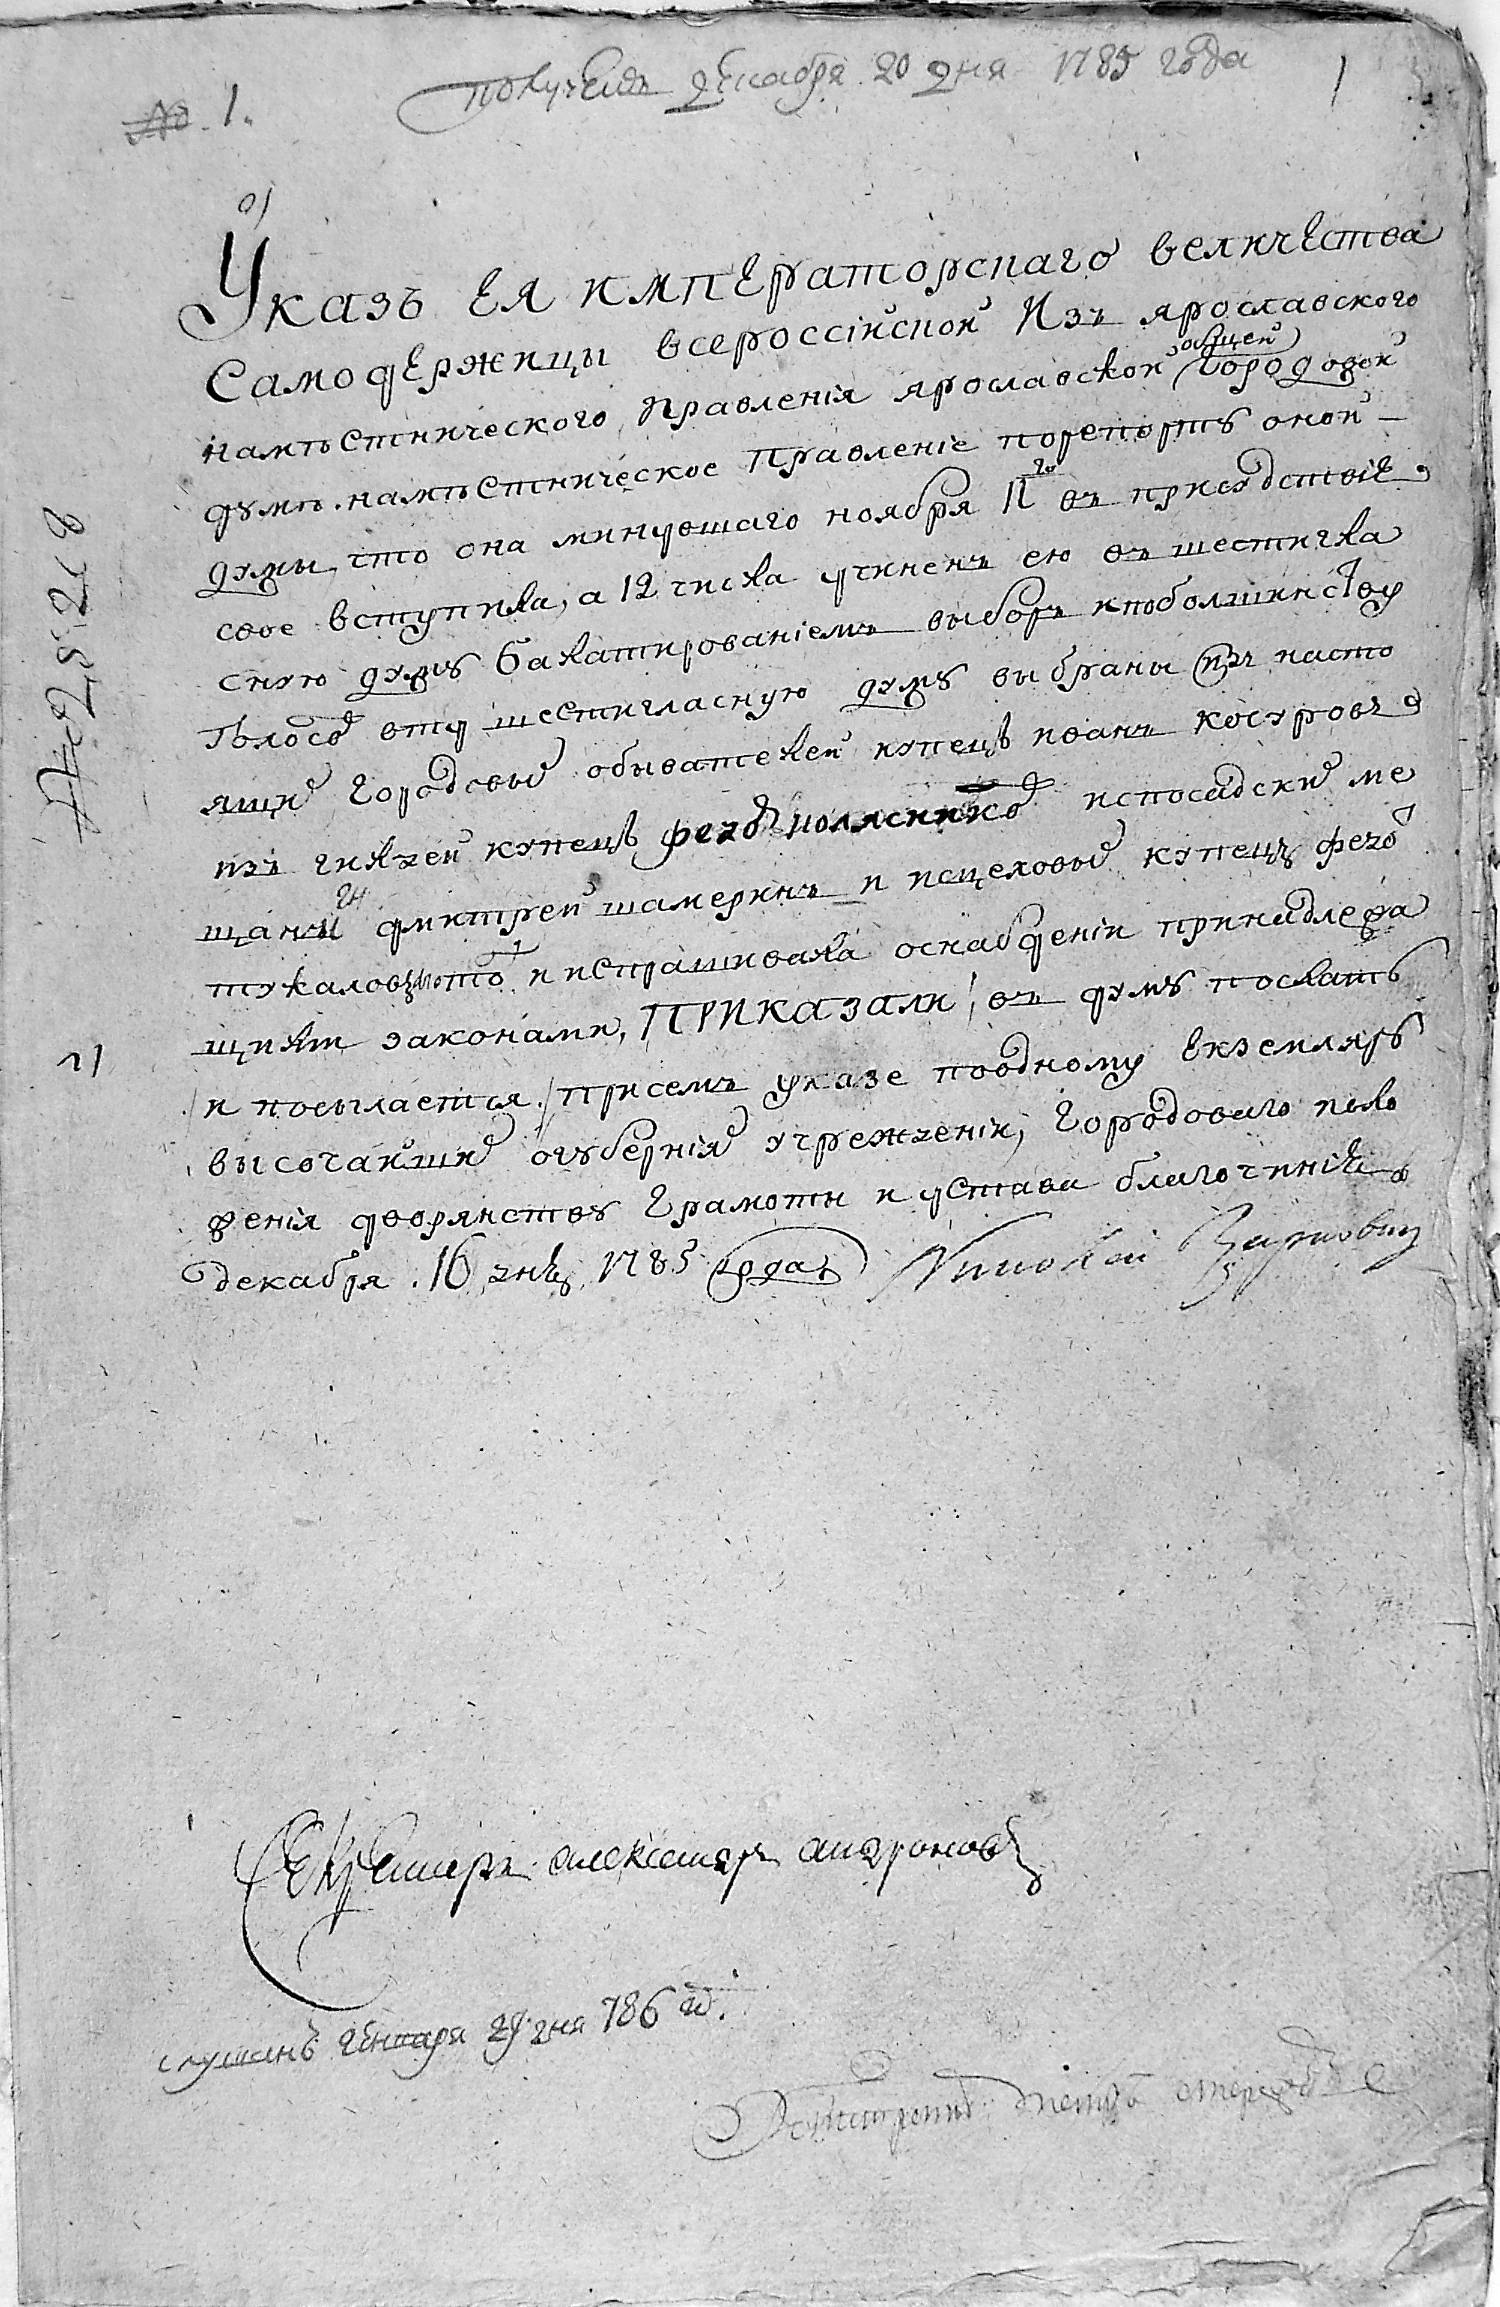 получен декабря 20 дня 1785 года
№ 1. 1
Указъ ея императорскаго величества
Самодержицы всероссійской Изъ ярославского
наместнического Правленія ярославской общей городовой
думе. наместническое Правленіе порепорту оной
думы что она минувшаго ноября 11го въ присудствие
свое вступила, а 12 числа учиненъ ею въ шестигла
сную думу балатированіемъ выборъ ипоболшинству
голосов вту шестигласную думу выбраны изъ насто
ящих городовых обывателей купец иванъ косуров
изъ гилдей купец федо исъпосадских ме
щанъ дмитрей шамеринъ и исцеховых купец федо
тукалов ито и испрашивала оснабдении принадлежа
щим законами, ПРИКАЗАЛИ, въ думу послать
и посылается присемъ указе поодному екземпляру
высочайших огубернияхъ учреждении, городоваго поло
жения дворянству грамоты и устава благочиния
декабря 16 дня 1785 года
№ 25218
Секретарь александръ андронов
слушанъ генваря 29 дня 786 го.